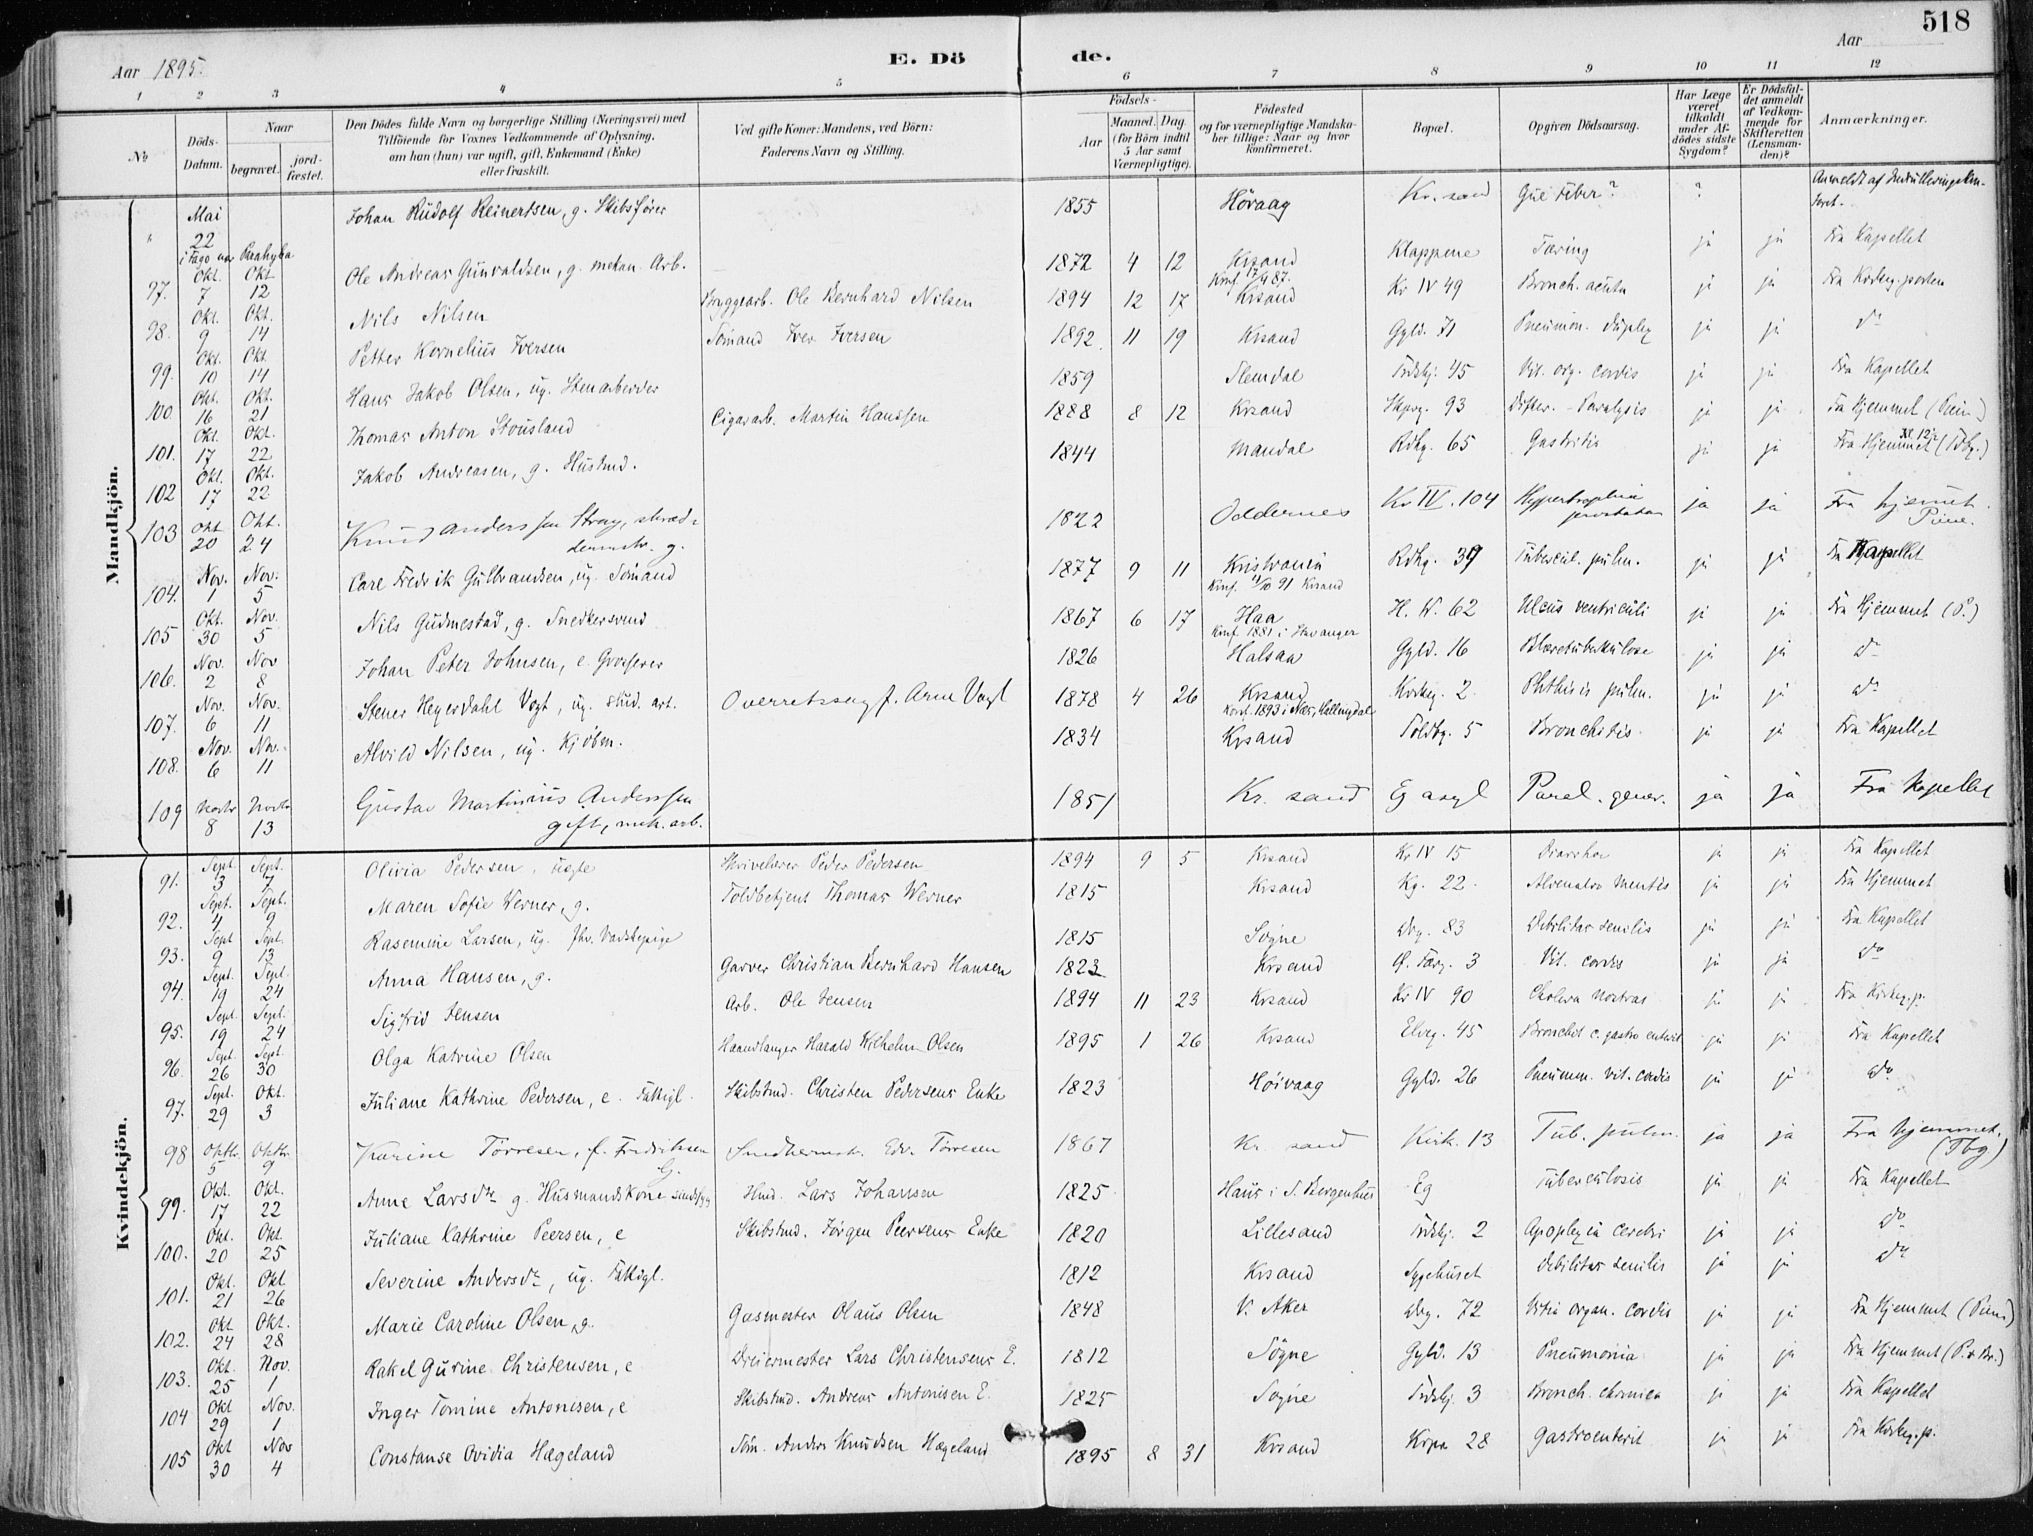 518
Aar 1895.
E. Dö de.
Aar
1 2 3 4 5 6 7 8 9 10 11 12
No
Döds-Datum.
Naar
begravet.
jord-fæstet.
Den Dödes fulde Navn og borgerlige Stilling (Næringsvei) med
Tilföiende for Voxnes Vedkommende af Oplysning,
om han (hun) var ugift, gift, Enkemand (Enke)
eller fraskilt.
Ved gifte Koner: Mandens, ved Börn:
Faderens Navn og Stilling.
Födsels-
Aar
Maaned. Dag.
(for Börn indtil 5 Aar samt Værnepligtige).
Födested
og for værnepligtige Mandska-
ber tillige: Naar og hvor
konfirmeret.
Bopæl.
Opgiven Dödsaarsag.
Har Læge været tilkaldt under Af-dödes sidste Sygdom?
Er Dödsfal-det anmeldt af Vedkom-mende for Skifteretten (Lensman-den)?
Anmærkninger.
Mandkjön.
" Mai 22 Johan Rudolf Reinertsen, g. Skibsfører 1855 Hövaag Kr. sand Gul Feber? ? Anmeldt af
97. Okt. 7 Okt 12 Ole Andreas Gunvaldsen, g. mekan. Arb. 1872 4 12 Krsand Klappene Tæring ja ja Fra Kapellet
Konf. 17/4 87.
98. Okt. 9 Okt. 14 Nils Nilsen Bryggearb. Ole Bernhard Nilsen 1894 12 17 Krsand Kr IV 49 Bronch. acuta ja ja Fra Kirkeg. porten
99. Okt. 10 Okt. 14 Petter Kornelius Iversen Sømand Iver Iversen 1892 11 19 Krsand Gyld. 71 Pneumon. duplex ja ja do
100 Okt. 16 Okt. 21 Hans Jakob Olsen, ug. Stenarbeider 1859 Slemdal Tordskj. 45 Vit. org. cordis ja ja Fra Kapellet
101. Okt. 17 Okt. 22 Thomas Anton Stousland Cigararb. Martin Hanssen 1888 8 12 Krsand Skprg. 93 Difter. - Paralysis ja ja Fra Hjemmet
102 Okt. 17 Okt. 22 Jakob Andreasen, g. Husmd. 1844 Mandal Rdhg. 65 Gastritis ja ja Fra Hjemmet
103 Okt 20 Okt. 24 Knud Anderssen Stray, skræd-dermstr. g. 1822 Oddernes Kr IV. 104 Hypertrophia prostatae ja ja Fra hjemmet.
104. Nov. 1 Nov. 5 Carl Fredrik Gulbrandsen, ug. Sømand 1877 9 11 Kristiania Rdhg. 39 Tubercul. pulm. ja ja Fra Kapellet
Konf. 4/10 91 Krsand
105 Okt. 30 Nov. 5 Nils Gudmestad, g. Snedkersvend 1867 6 17 Haa H. W. 62 Ulcus ventriculi ja ja Fra Hjemmet
Konf 1881 i Stavanger
106. Nov. 2 Nov 8 Johan Peter Johnsen, e. Grosserer 1826 Halsaa Gyld. 16 Blæretuberkulose ja ja do
107. Nov. 6 Nov. 11 Stener Heyerdahl Vogt, ug. stud. art. Overretssagf. Arne Vogt 1878 4 26 Krsand Kirkeg. 2. Phthisis pulm. ja ja do
Konf. 1893 i Næs, Hallingdal
108. Nov. 6 Nov. 11 Alvild Nilsen, ug. Kjøbm. 1834 Krsand Toldbg. 5 Bronchitis. ja ja Fra Kapellet
109 Novbr 8 Novbr 13 Gustav Martinius Anderssen gift, mek. arb. 1851 Kr. sand Eg asyl Paral. gener. ja ja Fra Kapellet
Kvindekjön.
91. Sept. 3 Sept. 7 Olivia Pedersen, uægte Skrivelærer Peder Pedersen 1894 9 5 Krsand Kr IV 15 Diarrhoe ja ja Fra Kapellet
92. Sept. 4 Sept. 9 Maren Sofie Werner, g. Toldbetjent Thomas Werner 1815 Krsand Kg. 22. Alienatio mentis ja ja Fra Hjemmet
93. Sept 9 Sept. 13 Rasemine Larsen, ug. fhv. Vadskepige 1815 Søgne Dbg. 83 Debilitas senilis ja ja Fra Kapellet
94. Sept. 19 Sept. 24 Anna Hansen, g. Garver Christian Bernhard Hansen 1823 Krsand Ø. Tærg. 3 Vit. cordis ja ja do
95. Sept. 19 Sept. 24 Sigfrid Jensen Arb. Ole Jensen 1894 11 23 Krsand Kr IV 90 Cholera nostras ja ja Fra Kirkeg.p.
96. Sept. 26 Sept. 30 Olga Katrine Olsen Haandlanger Harald Wilhelm Olsen 1895 1 26 Krsand Elveg. 45 Bronchit c. gastro enterit ja ja Fra Kapellet
97. Sept. 29 Okt. 3 Juliane Kathrine Pedersen, e. Fattigl. Skibstmd. Christen Pedersens Enke 1823 Høivaag Gyld. 26 Pneumon. vit. cordis ja ja do
98 Oktbr. 5 Oktbr. 9 Karine Törresen, f. Fredriksen g. Smedhermstr. Edv. Törresen 1867 Kr. sand Kirk. 13 Tub. pulm. ja ja Fra hjemmet. (Tbg)
99. Okt. 17 Okt. 22 Anne Larsdtr g. Husmandskone Hmd. Lars Johansen 1825 Haus i S. Bergenhus Eg Tuberculosis ja ja Fra Kapellet
100. Okt. 20 Okt. 25 Juliane Kathrine Peersen, e Skibstmd. Jørgen Peersens Enke 1820 Lillesand Tordskj. 2 Apoplexia cerebri ja ja do
101. Okt. 21 Okt 26 Severine Andersdtr, ug. Fattigl. 1812 Krsand Sygehuset Debilitas senilis ja ja do
102. Okt 24 Okt. 28 Marie Caroline Olsen, g. Gasmester Olaus Olsen 1848 V. Aker Dbg. 72 Vitia organ. cordis ja ja Fra Hjemmet
103. Okt. 25 Nov. 1 Rakel Gurine Christensen, e Dreiermester Lars Christensens E. 1812 Søgne Gyld. 13 Pneumonia ja ja Fra Hjemmet
104 Okt 29 Nov. 1 Inger Tomine Antonisen, e Skibstmd. Andreas Antonisen E. 1825 Søgne Tordskj. 3 Bronch. chronica ja ja Fra Kapellet
105 Okt 30 Nov 4 Constanse Ovidia Hægeland Søm. Anders Knudsen Hægeland 1895 8 31 Krsand Krpr 28 Gastroenterit ja ja Fra Kirkeg.p.